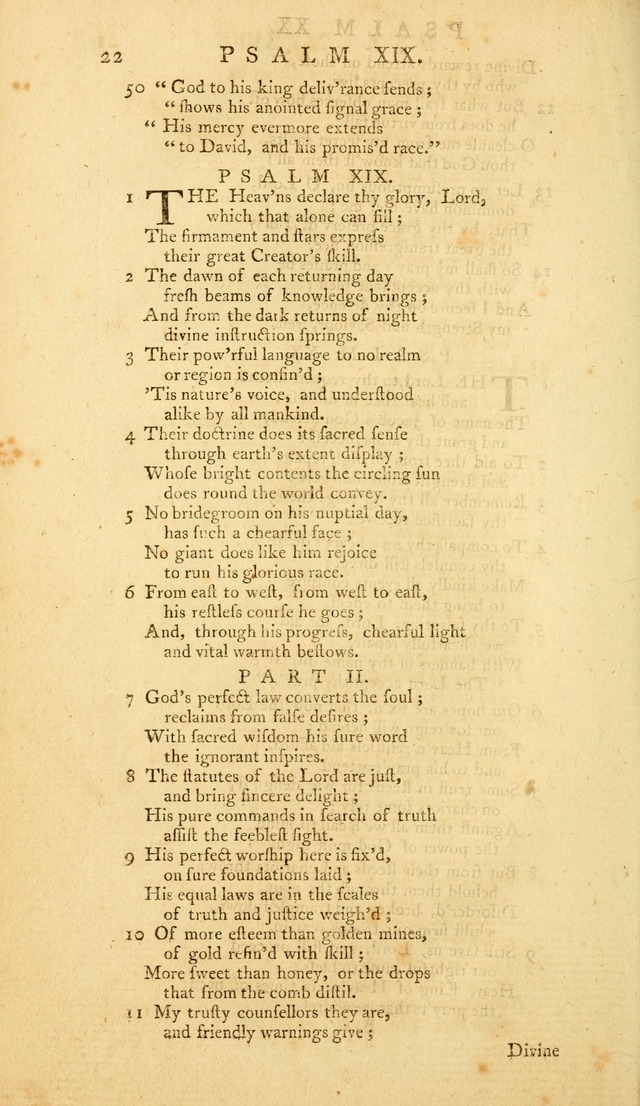 22 PSALM XIX.
50 “ God to his king deliv'rance ſends ;
“ ſhows his anointed ſignal grace ;
“ His mercy evermore extends
“ to David, and his promis'd race.”
PSALM XIX.
1 THE Heav'ns declare thy glory, Lord,
which that alone can fill ;
The firmament and ſtars expreſs
their great Creator's ſkill.
2 The dawn of each returning day
freſh beams of knowledge brings ;
And from the dark returns of night
divine inſtruction ſprings.
3 Their pow'rful language to no realm
or region is confin'd ;
'Tis nature's voice, and underſtood
alike by all mankind.
4 Their doctrine does its ſacred ſenſe
through earth's extent diſplay ;
Whoſe bright contents the circling ſun
does round the world convey.
5 No bridegroom on his nuptial day,
has ſuch a chearful face ;
No giant does like him rejoice
to run his glorious race.
6 From eaſt to weſt, from weſt to eaſt,
his reſtleſs courſe he goes ;
And, through his progreſs, chearful light
and vital warmth beſtows.
PART II.
7 God's perfect law converts the ſoul ;
reclaims from falſe deſires ;
With ſacred wiſdom his ſure word
the ignorant inſpires.
8 The ſtatutes of the Lord are juſt,
and bring ſincere delight ;
His pure commands in ſearch of truth
aſſiſt the feebleſt ſight.
9 His perfect worſhip here is fix'd,
on ſure foundations laid ;
His equal laws are in the ſcales
of truth and juſtice weigh'd ;
10 Of more eſteem than golden mines,
of gold refin'd with ſkill ;
More ſweet than honey, or the drops
that from the comb diſtil.
11 My truſty counſellors they are,
and friendly warnings give ;
Divine